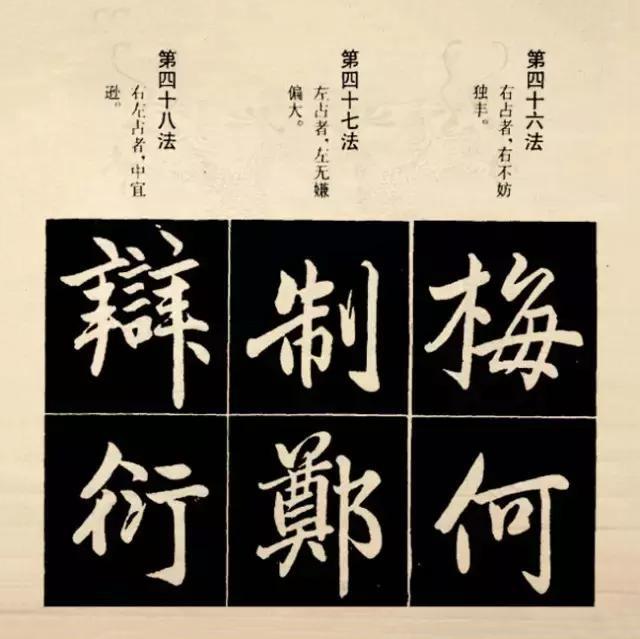 第四十六法
右占者，右不妨
独丰。
梅
何
第四十七法
左占者，左无嫌
偏大。
制
鄭
第四十八法
右左占者，中宜
逊。
辯
衍